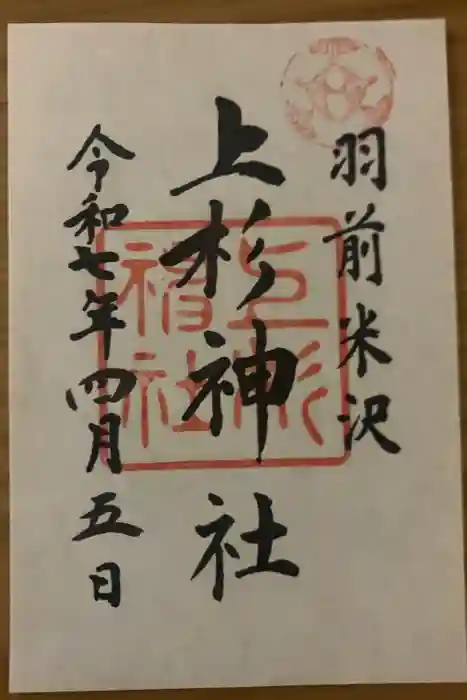 羽前米沢
上杉神社
令和七年四月五日
上杉
神社